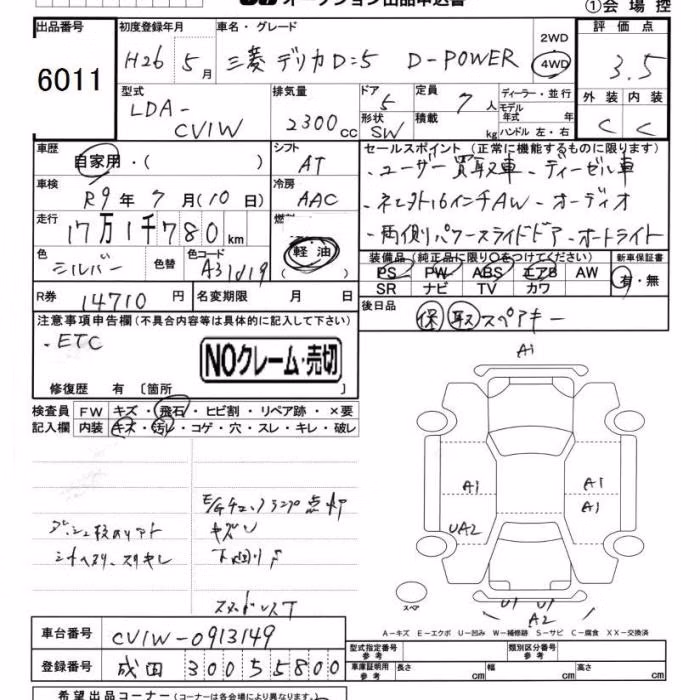 オークション出品申込書
①会場控
出品番号 初度登録年月 車名・グレード 評価点
6011 H26 5月 三菱 デリカD:5 D-POWER 2WD 4WD 3.5
型式 排気量 ドア 定員 ディーラー・並行 外装 内装
LDA-CV1W 2300cc 5 7人 モデル年式 年 C C
形状 SW 積載 kg ハンドル 左・右
車歴 シフト セールスポイント(正常に機能するものに限ります)
自家用・( ) AT ・ユーザー買取車 ・ディーゼル車
車検 冷房
R9年7月(10日) AAC ・社外16インチAW ・オーディオ
走行 燃料
17万1千780km 軽油 ・両側パワースライドドア ・オートライト
色 色替 色コード 装備品(純正品に限り○をつけてください) 新車保証書
シルバー A31d19 ( ) PS PW ABS エアB AW 有・無
SR ナビ TV カワ
R券 14710円 名変期限 月 日 後日品
保 取 スペアキー
注意事項申告欄(不具合内容等は具体的に記入して下さい)
・ETC
NOクレーム・売切
修復歴 有〔箇所 〕
検査員 FW キズ・飛石・ヒビ割・リペア跡・×要
記入欄 内装 キズ・汚レ・コゲ・穴・スレ・キレ・破レ
A1
A1 A1
A1
UA2
E/Gチェックランプ点灯
キズU
下廻りS
スタッドレスT
スペア
U1 U1
A2
A-キズ E-エクボ U-凹み W-補修跡 S-サビ C-腐食 XX-交換済
車台番号 CV1W-0913149
登録番号 成田 300 55800
型式指定番号 参考 類別区分番号 参考
車庫証明用 参考 長さ cm 幅 cm 高さ cm
希望出品コーナー(コーナーは各会場により異なります。)